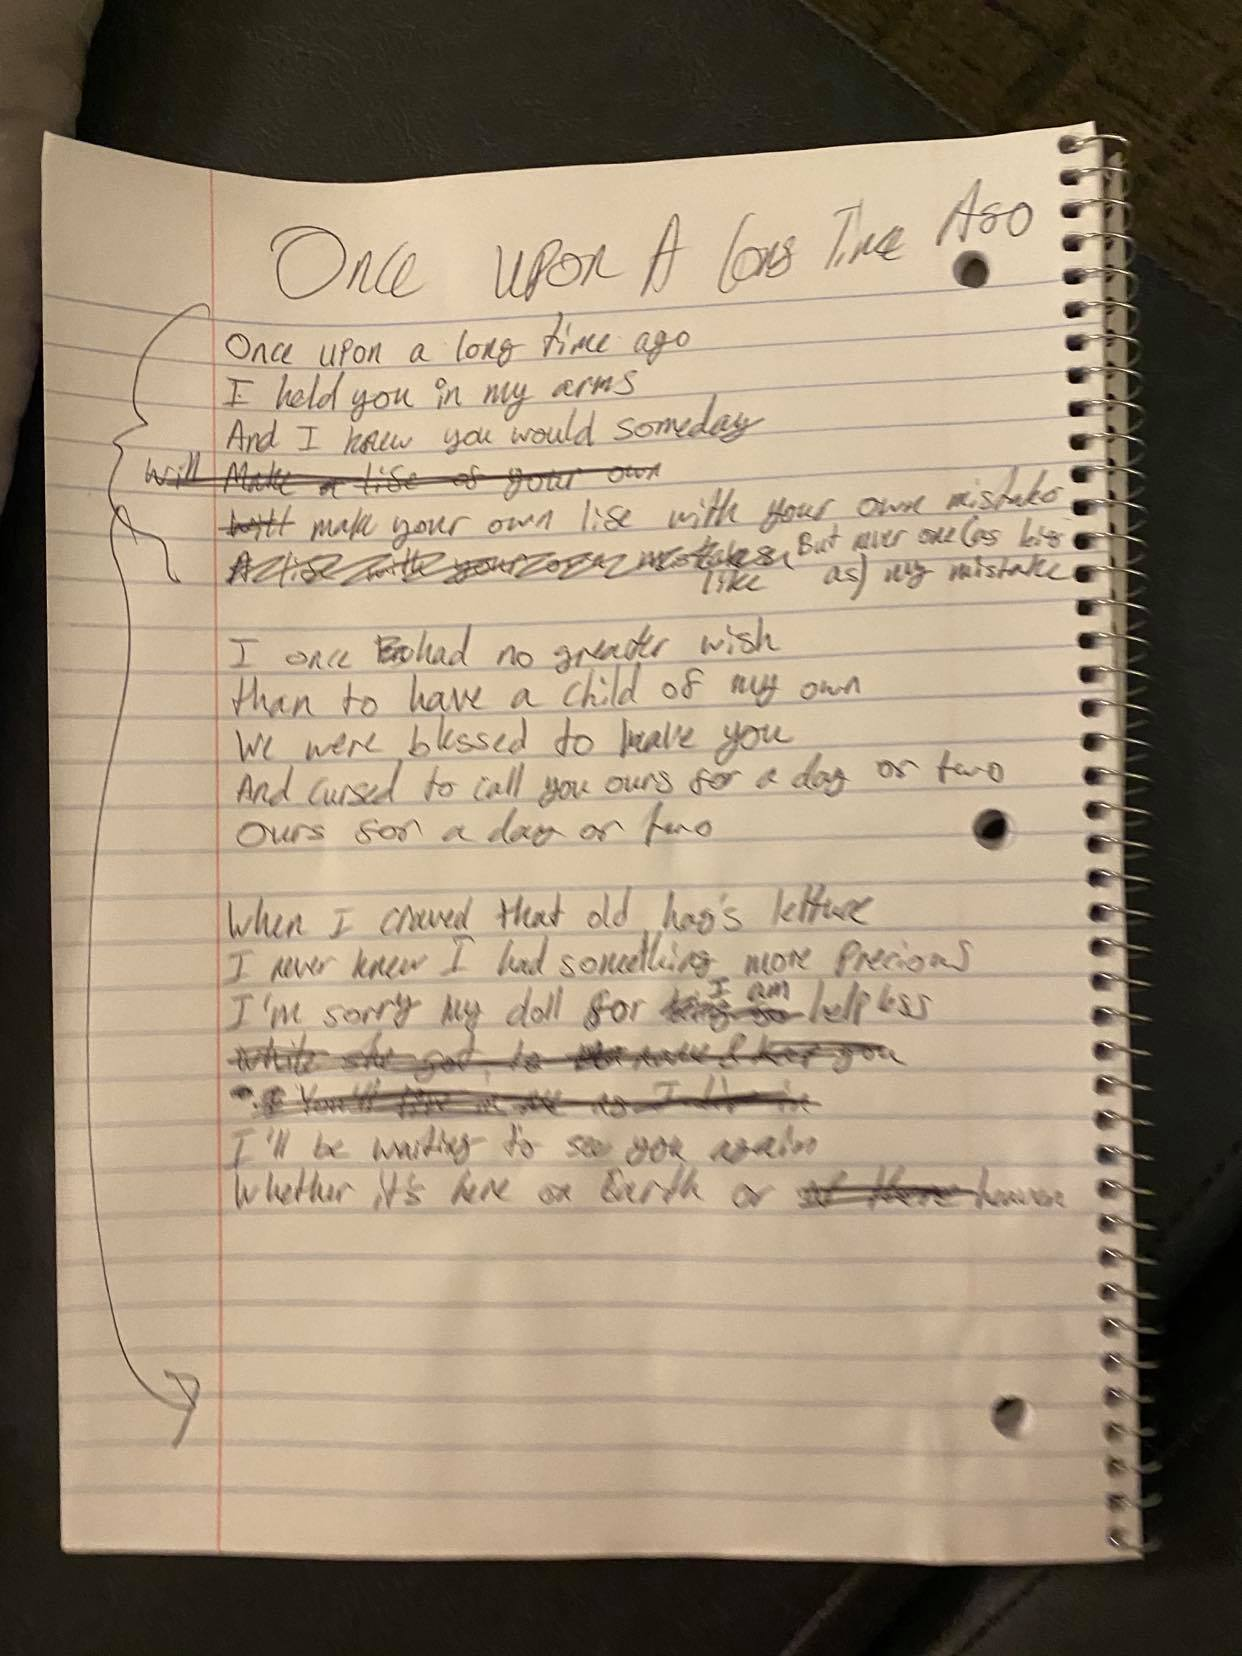 Once Upon A Long Time Ago
Once upon a long time ago
I held you in my arms
And I knew you would someday
Will Make a life of your own
will make your own life with your own mistake
A life with your own mistakes But never one (as big
like as) my mistake
I once had no greater wish
than to have a child of my own
We were blessed to have you
And cursed to call you ours for a day or two
Ours for a day or two
When I craved that old hag's lettuce
I never knew I had something more precious
I am
I'm sorry my doll for being so helpless
while she got to you
You'll live in as I live in
I'll be waiting to see you again
Whether it's here on Earth or heaven